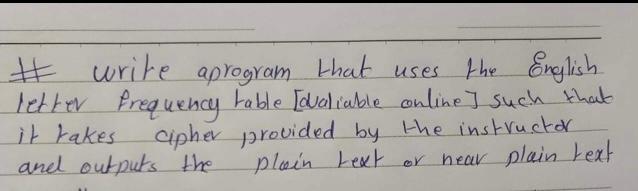 # write aprogram that uses the English
letter frequency table [avaliable online] such that
it takes cipher provided by the instructor
and outputs the plain text or near plain text